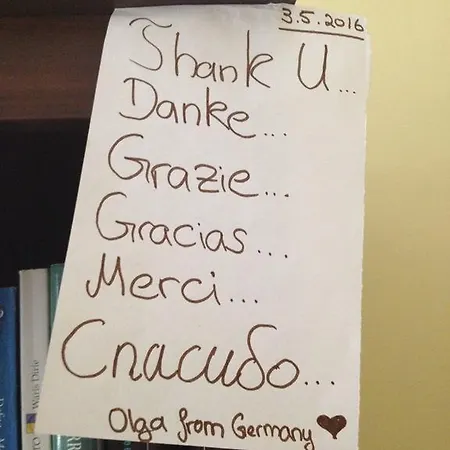 3.5.2016
Thank U...
Danke...
Grazie...
Gracias...
Merci...
Спасибо...
Olga from Germany ♥
Waris Dirie